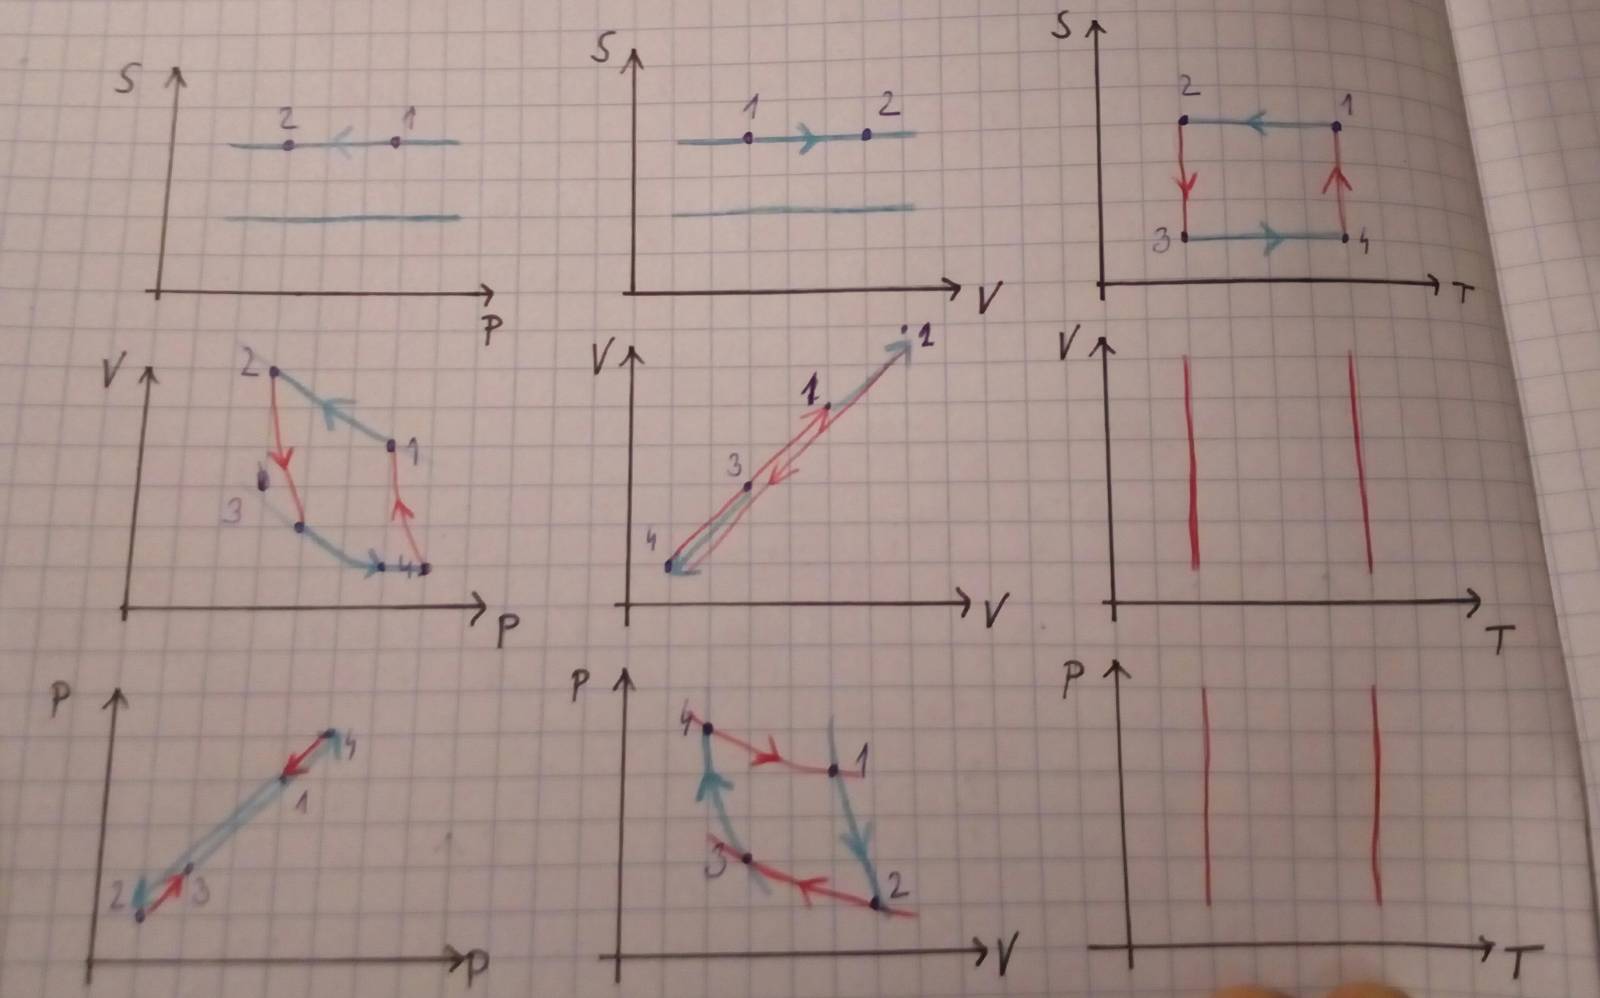 S
2 1
P
S
1 2
V
S
2 1
3 4
T
V
2
1
3
4
P
V
2
1
3
4
V
V
T
P
4
1
2 3
P
P
4
1
3
2
V
P
T